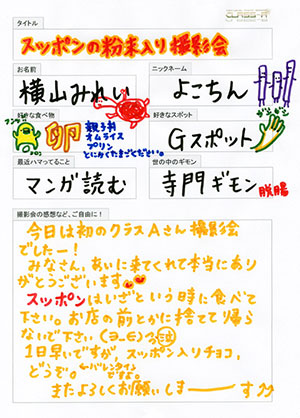 タイトル
スッポンの粉末入り撮影会
お名前
ニックネーム
横山みれい
よこちん
好きな食べ物
好きなスポット
卵
親子丼
オムライス
プリン
とにかくたまごください。
Gスポット
最近ハマってること
世の中のギモン
マンガ読む
寺門ギモン
脱腸
撮影会の感想など、ご自由に!
今日は初のクラスAさん撮影会
でしたー!
みなさん、あいに来てくれて本当にあり
がとうございます。
スッポンはいざという時に食べて
下さい。お店の前とかに捨てて帰ら
ないで下さい(ヨ_ヨ)泣
1日早いですが、スッポン入りチョコ、
どうぞ。←バレンタイン
ですよ。
またよろしくお願いしまーーす